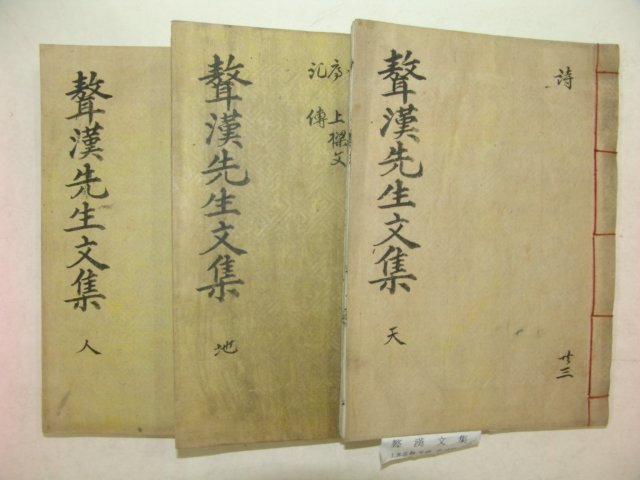 詩
聱漢先生文集
天
廿三
上樑文
序
記 傳
聱漢先生文集
地
聱漢先生文集
人
聱漢文集